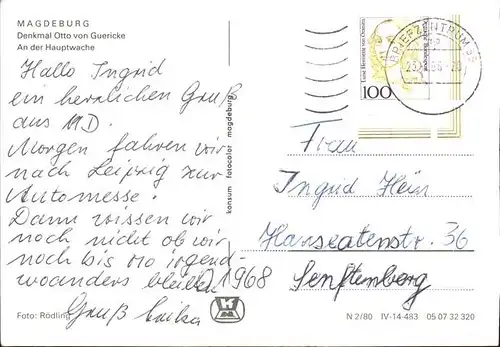 MAGDEBURG
Denkmal Otto von Guericke
An der Hauptwache
Hallo Ingrid
ein herzlichen Gruß
aus MD.
Morgen fahren wir
nach Leipzig zur
Automesse.
Dann wissen wir
noch nicht ob wir
noch bis irgend-
woanders bleiben
Gruß
Foto: Rödling
konsum fotocolor magdeburg
100
BRIEFZENTRUM 39
Frau
Ingrid Hein
Hanseatenstr. 36
01968
Senftenberg
N 2/80 IV-14-483 05 07 32 320